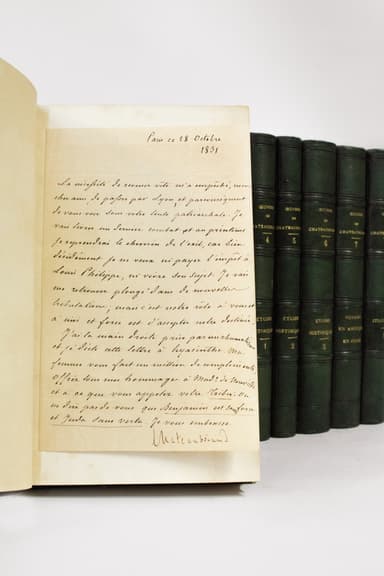 Paris ce 28 Octobre
1831
La nécessité de revenir vite m'a empêché, mon
cher ami, de passer par Lyon, et par conséquent
de vous voir sous votre tente patriarchale. Je
vais livrer un dernier combat et au printems
je reprendrai le chemin de l'exil, car bien
décidément je ne veux ni payer l'impôt à
Louis Philippe, ni vivre son sujet. Je vais
me retrouver plongé dans de nouvelles
tribulations, mais c'est notre rôle à vous et
à moi et force est d'accepter notre destinée.
J'ai la main droite prise par un rhumatisme
et je dicte cette lettre à hyacinthe. Ma
femme vous fait un million de compliments.
Offrez tous nos hommages à Made. de
et à ce que vous appelez votre Tribu. On
ne dira pas de vous que Benjamin est sans force
et Juda sans vertu. Je vous embrasse.
Chateaubriand
OEUVRES
DE
CHATEAUBRIAND
4
ETUDES
HISTORIQUES
1
OEUVRES
DE
CHATEAUBRIAND
5
ETUDES
HISTORIQUES
2
OEUVRES
DE
CHATEAUBRIAND
6
ETUDES
HISTORIQUES
3
OEUVRES
DE
CHATEAUBRIAND
7
VOYAGES
EN AMERIQUE